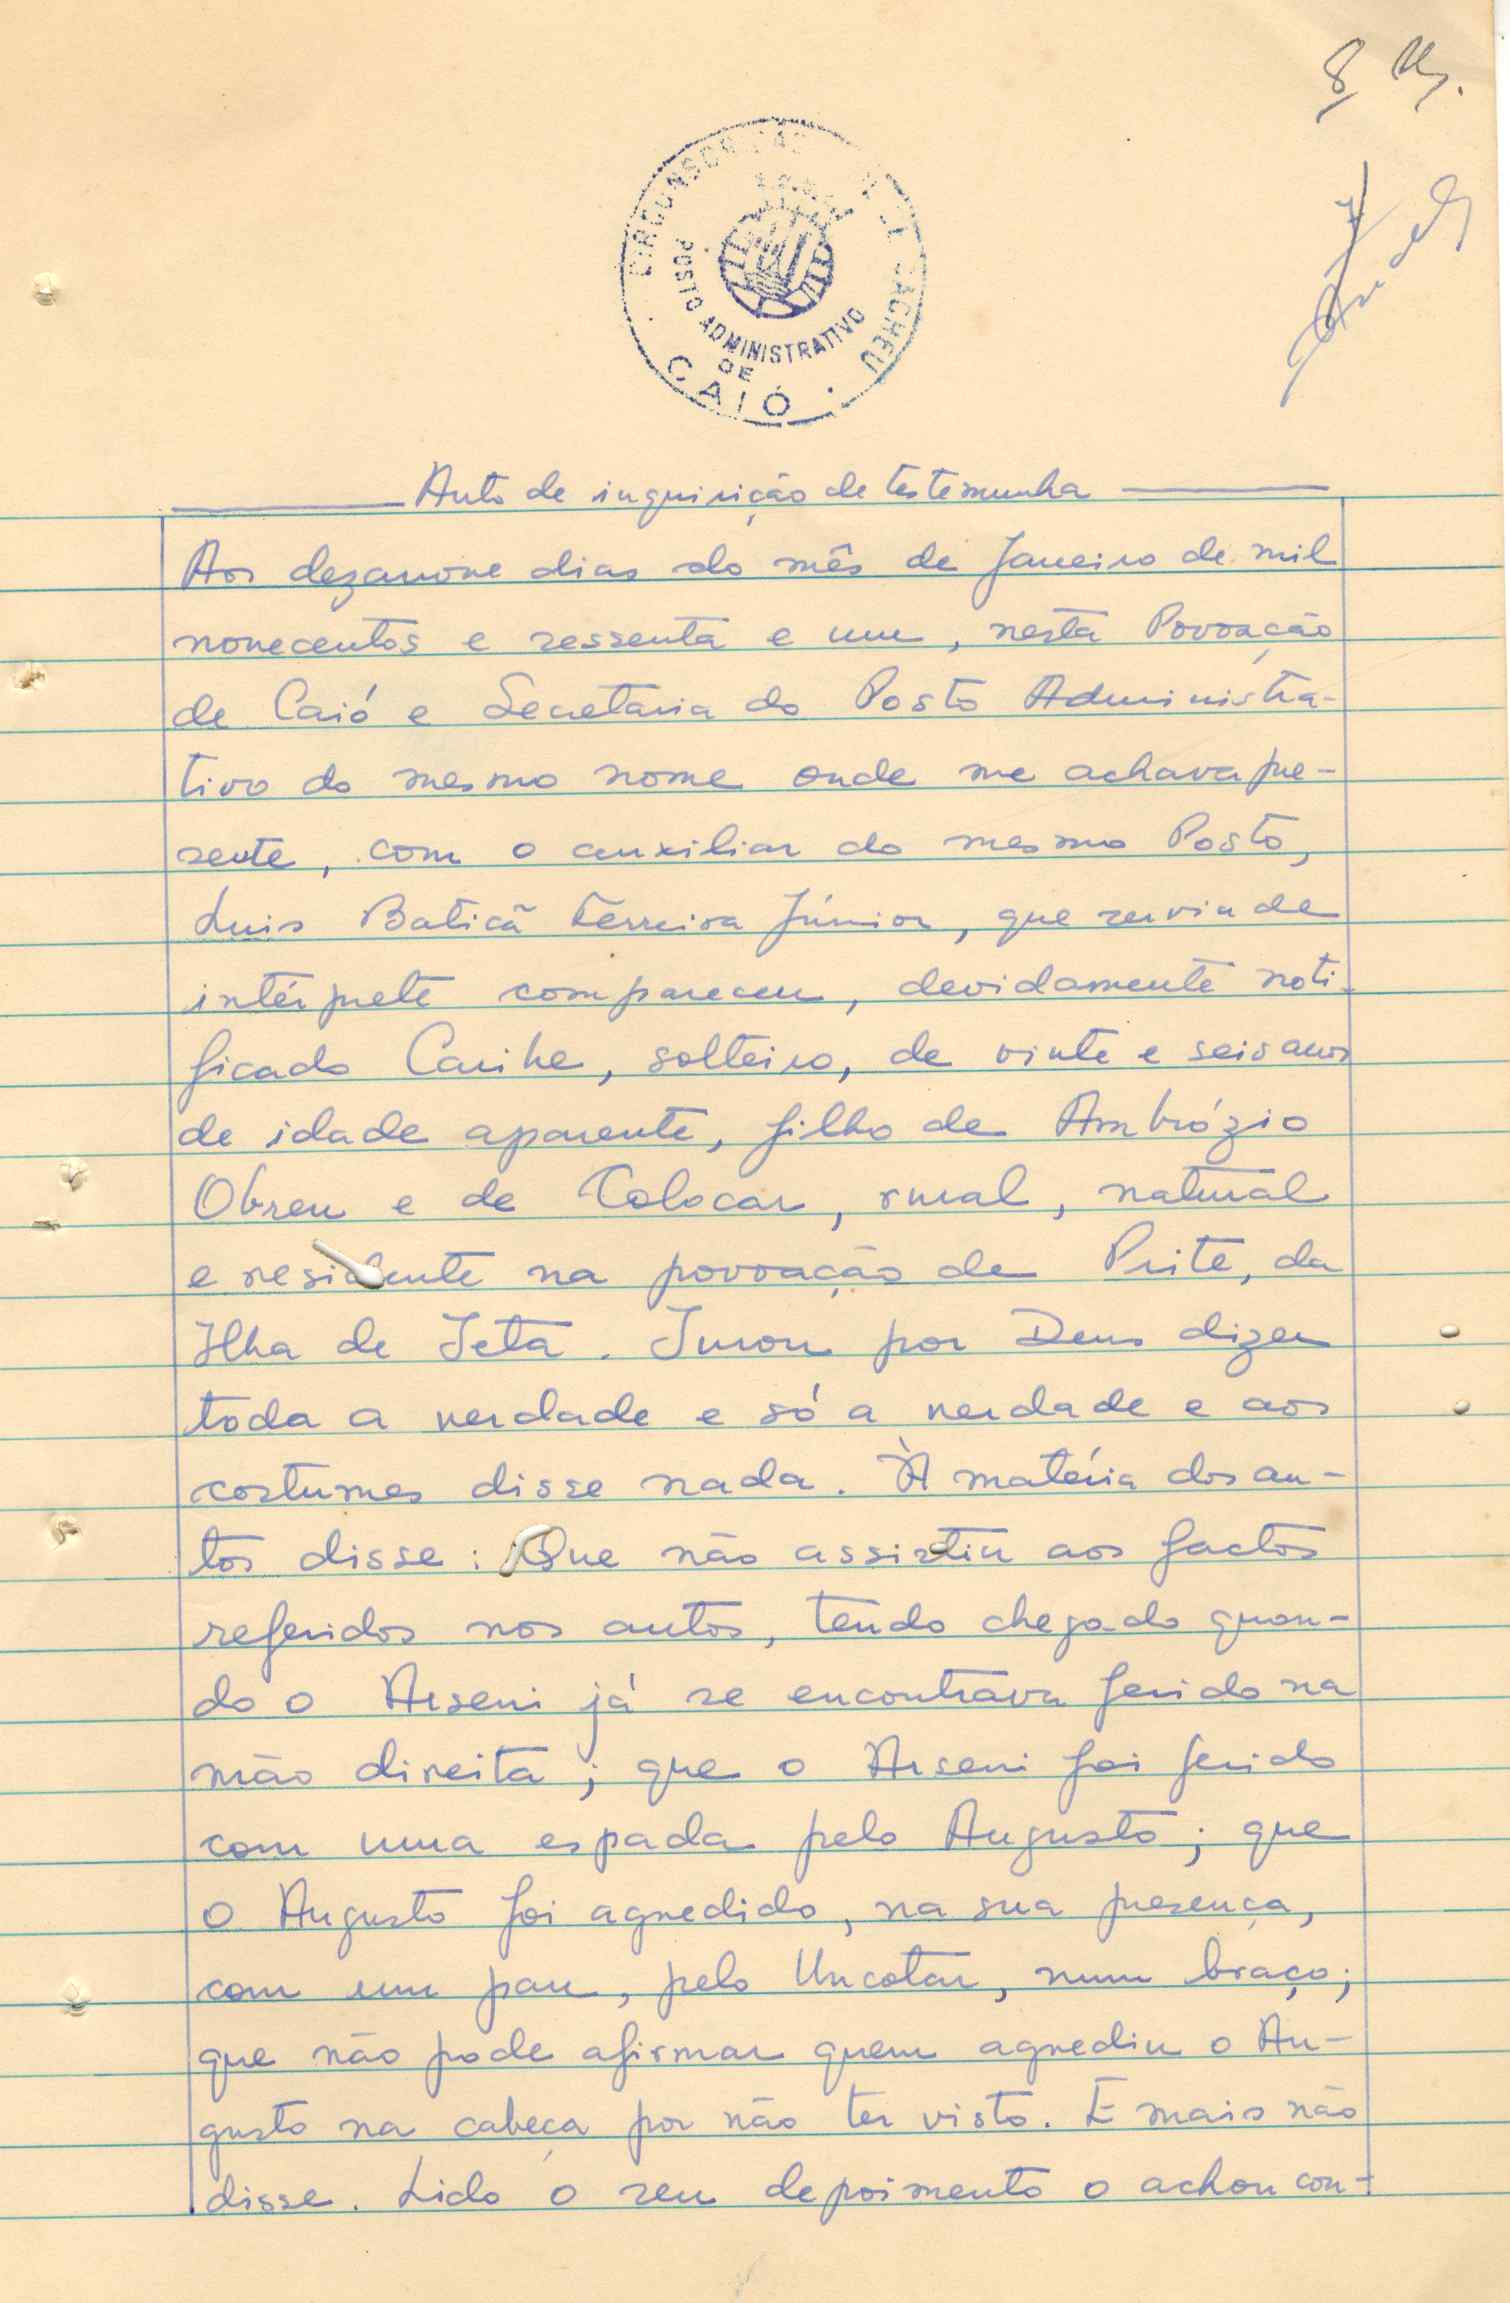 8
CIRCUNSCRIÇÃO DE CACHEU
POSTO ADMINISTRATIVO
DE
CAIÓ
Auto de inquirição de testemunha
Aos dezanove dias do mês de Janeiro de mil
novecentos e sessenta e um, nesta Povoação
de Caió e Secretaria do Posto Administra-
tivo do mesmo nome onde me achava pre-
sente, com o auxiliar do mesmo Posto,
Luis Baticã Ferreira Júnior, que servia de
intérprete compareceu, devidamente noti-
ficado Carihe, solteiro, de vinte e seis anos
de idade aparente, filho de Ambrózio
Obreu e de Colocar, rural, natural
e residente na povoação de Prite, da
Ilha de Jeta. Jurou por Deus dizer
toda a verdade e só a verdade e aos
costumes disse nada. À matéria dos au-
tos disse: Que não assistiu aos factos
referidos nos autos, tendo chegado quan-
do o Arseni já se encontrava ferido na
mão direita; que o Arseni foi ferido
com uma espada pelo Augusto; que
o Augusto foi agredido, na sua presença,
com um pau, pelo Uncotar, num braço;
que não pode afirmar quem agrediu o Au-
gusto na cabeça por não ter visto. E mais não
disse. Lido o seu depoimento o achou con-